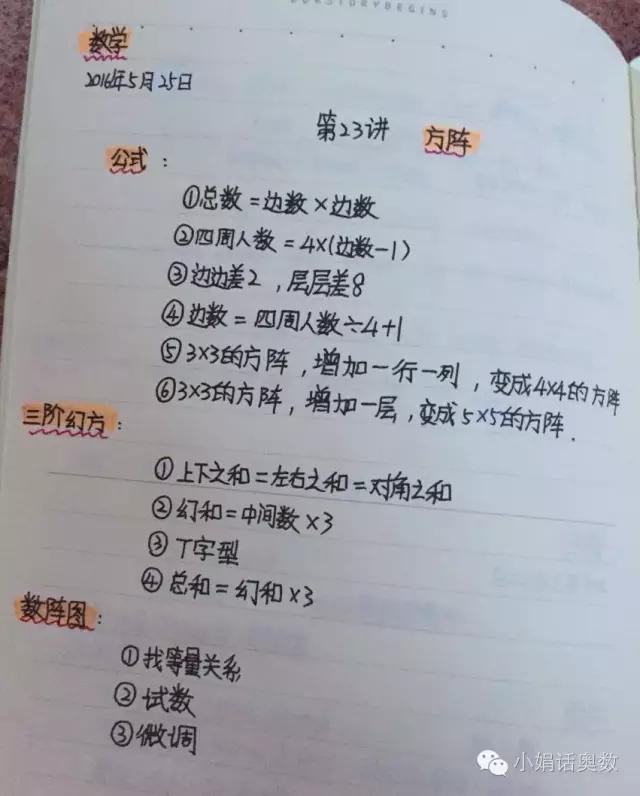 OURSTORYBEGINS
数学
2016年5月25日
第23讲 方阵
公式：
①总数=边数×边数
②四周人数=4×(边数-1)
③边边差2，层层差8
④边数=四周人数÷4+1
⑤3×3的方阵，增加一行一列，变成4×4的方阵
⑥3×3的方阵，增加一层，变成5×5的方阵.
三阶幻方：
①上下之和=左右之和=对角之和
②幻和=中间数×3
③T字型
④总和=幻和×3
数阵图：
①找等量关系
②试数
③微调
小娟话奥数